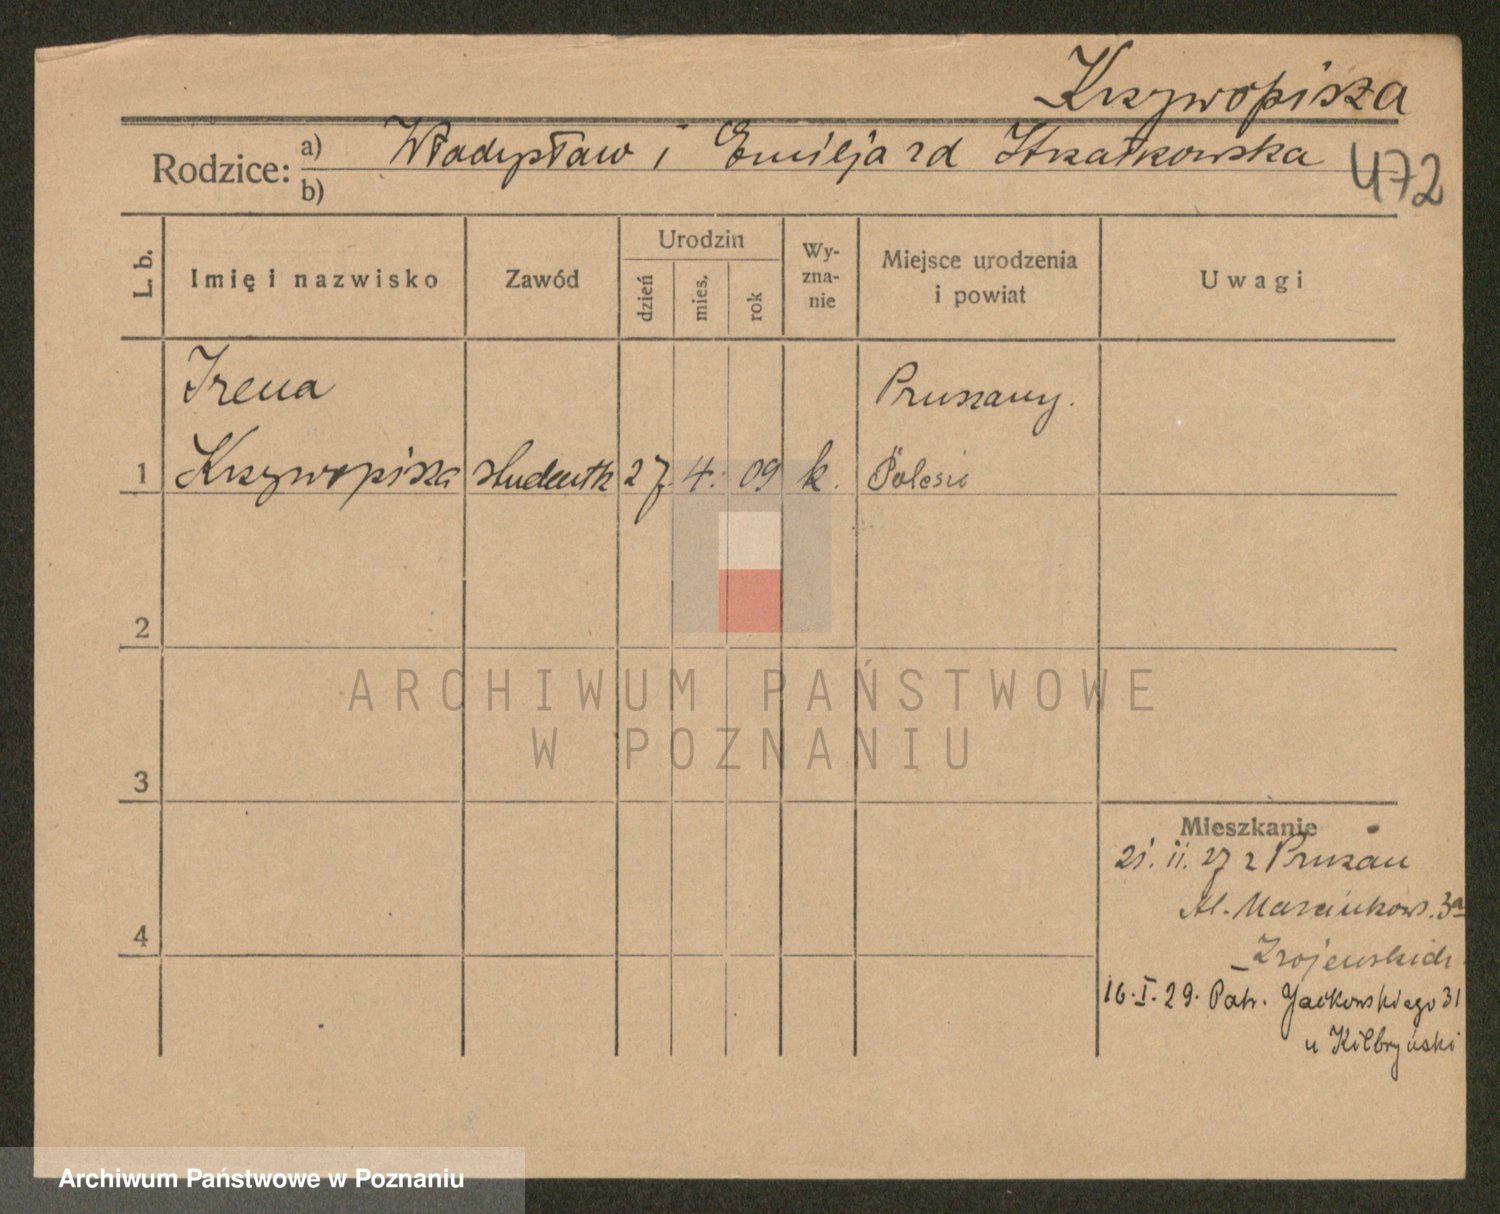 Krzywopisza
Rodzice: a) Władysław i Emilja zd Strzałkowska
b)
472
L. b.
Imię i nazwisko
Zawód
Urodzin
dzień
mies.
rok
Wy-
zna-
nie
Miejsce urodzenia
i powiat
Uwagi
Irena
Pruszany.
1 Krzywopisza studentk 27 4. 09 k. Polesie
2
3
4
ARCHIWUM PAŃSTWOWE
W POZNANIU
Mieszkanie
21. 11. 27 z Pruzan
Al. Marcinkows. 3a
16. I. 29. Patr. Jackowskiego 31
u
Archiwum Państwowe w Poznaniu